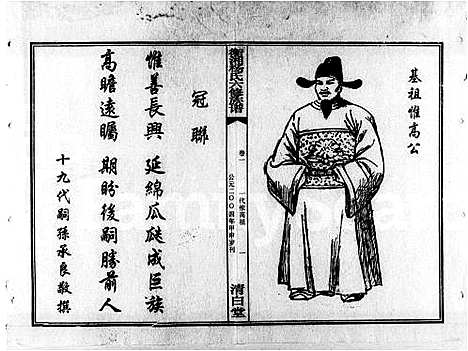 基祖惟高公
衡湘楊氏六修族谱
卷一
一代惟高祖
一
公元二00四年甲申岁刊
清白堂
冠聯
惟善長興 延綿瓜瓞成巨族
高瞻遠矚 期盼後嗣勝前人
十九代嗣孫承良敬撰